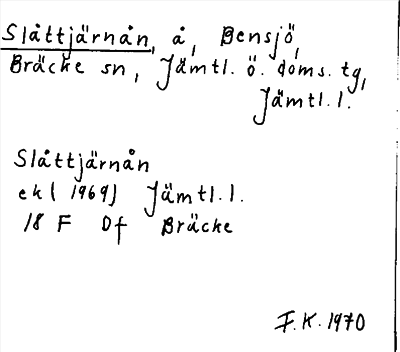 Slåttjärnån, å, Bensjö,
Bräcke sn, Jämtl. ö. doms. tg,
Jämtl. l.
Slåttjärnån
ek (1969) Jämtl. l.
18 F Df Bräcke
F.K. 1970